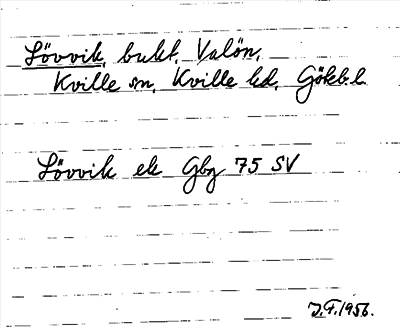 Lövvik, bukt, Valön,
Kville sn, Kville hd, Götebl.
Lövvik ek Gbg 75 SV
J.F. 1956.